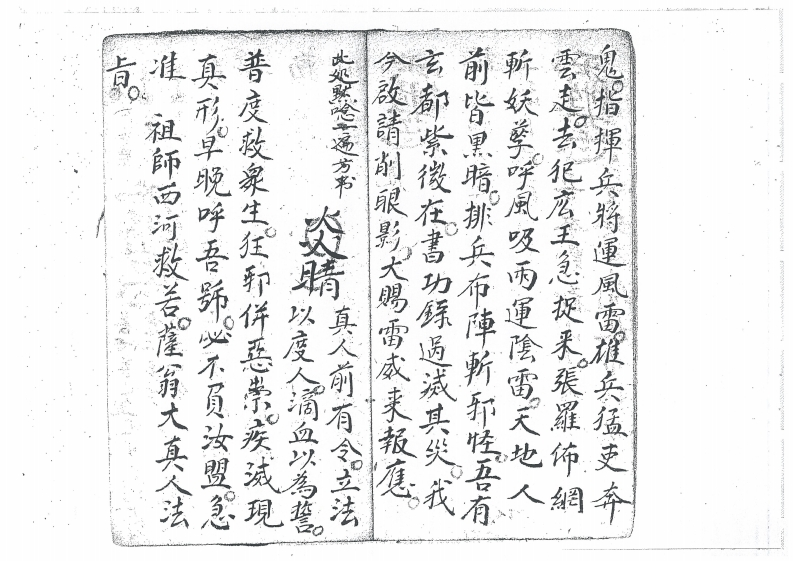 鬼。指揮兵將運風雷。雄兵猛吏奔
雲走。去犯広王急捉来。張羅佈網
斬妖孽。呼風吸雨運陰雷。天地人
前皆黑暗。排兵布陣斬邪怪。吾有
玄都紫微在。書功錄過滅其災。我
今啟請削眼影。大賜雷威来報應。
此処黙唸一遍方书
真人前有令。立法
以度人。滴血以為誓。
普度救衆生。狂邪併惡祟。疾滅現
真形。早晚呼吾號。必不負汝盟。急
准 祖師西河救苦。薩翁大真人法
旨。